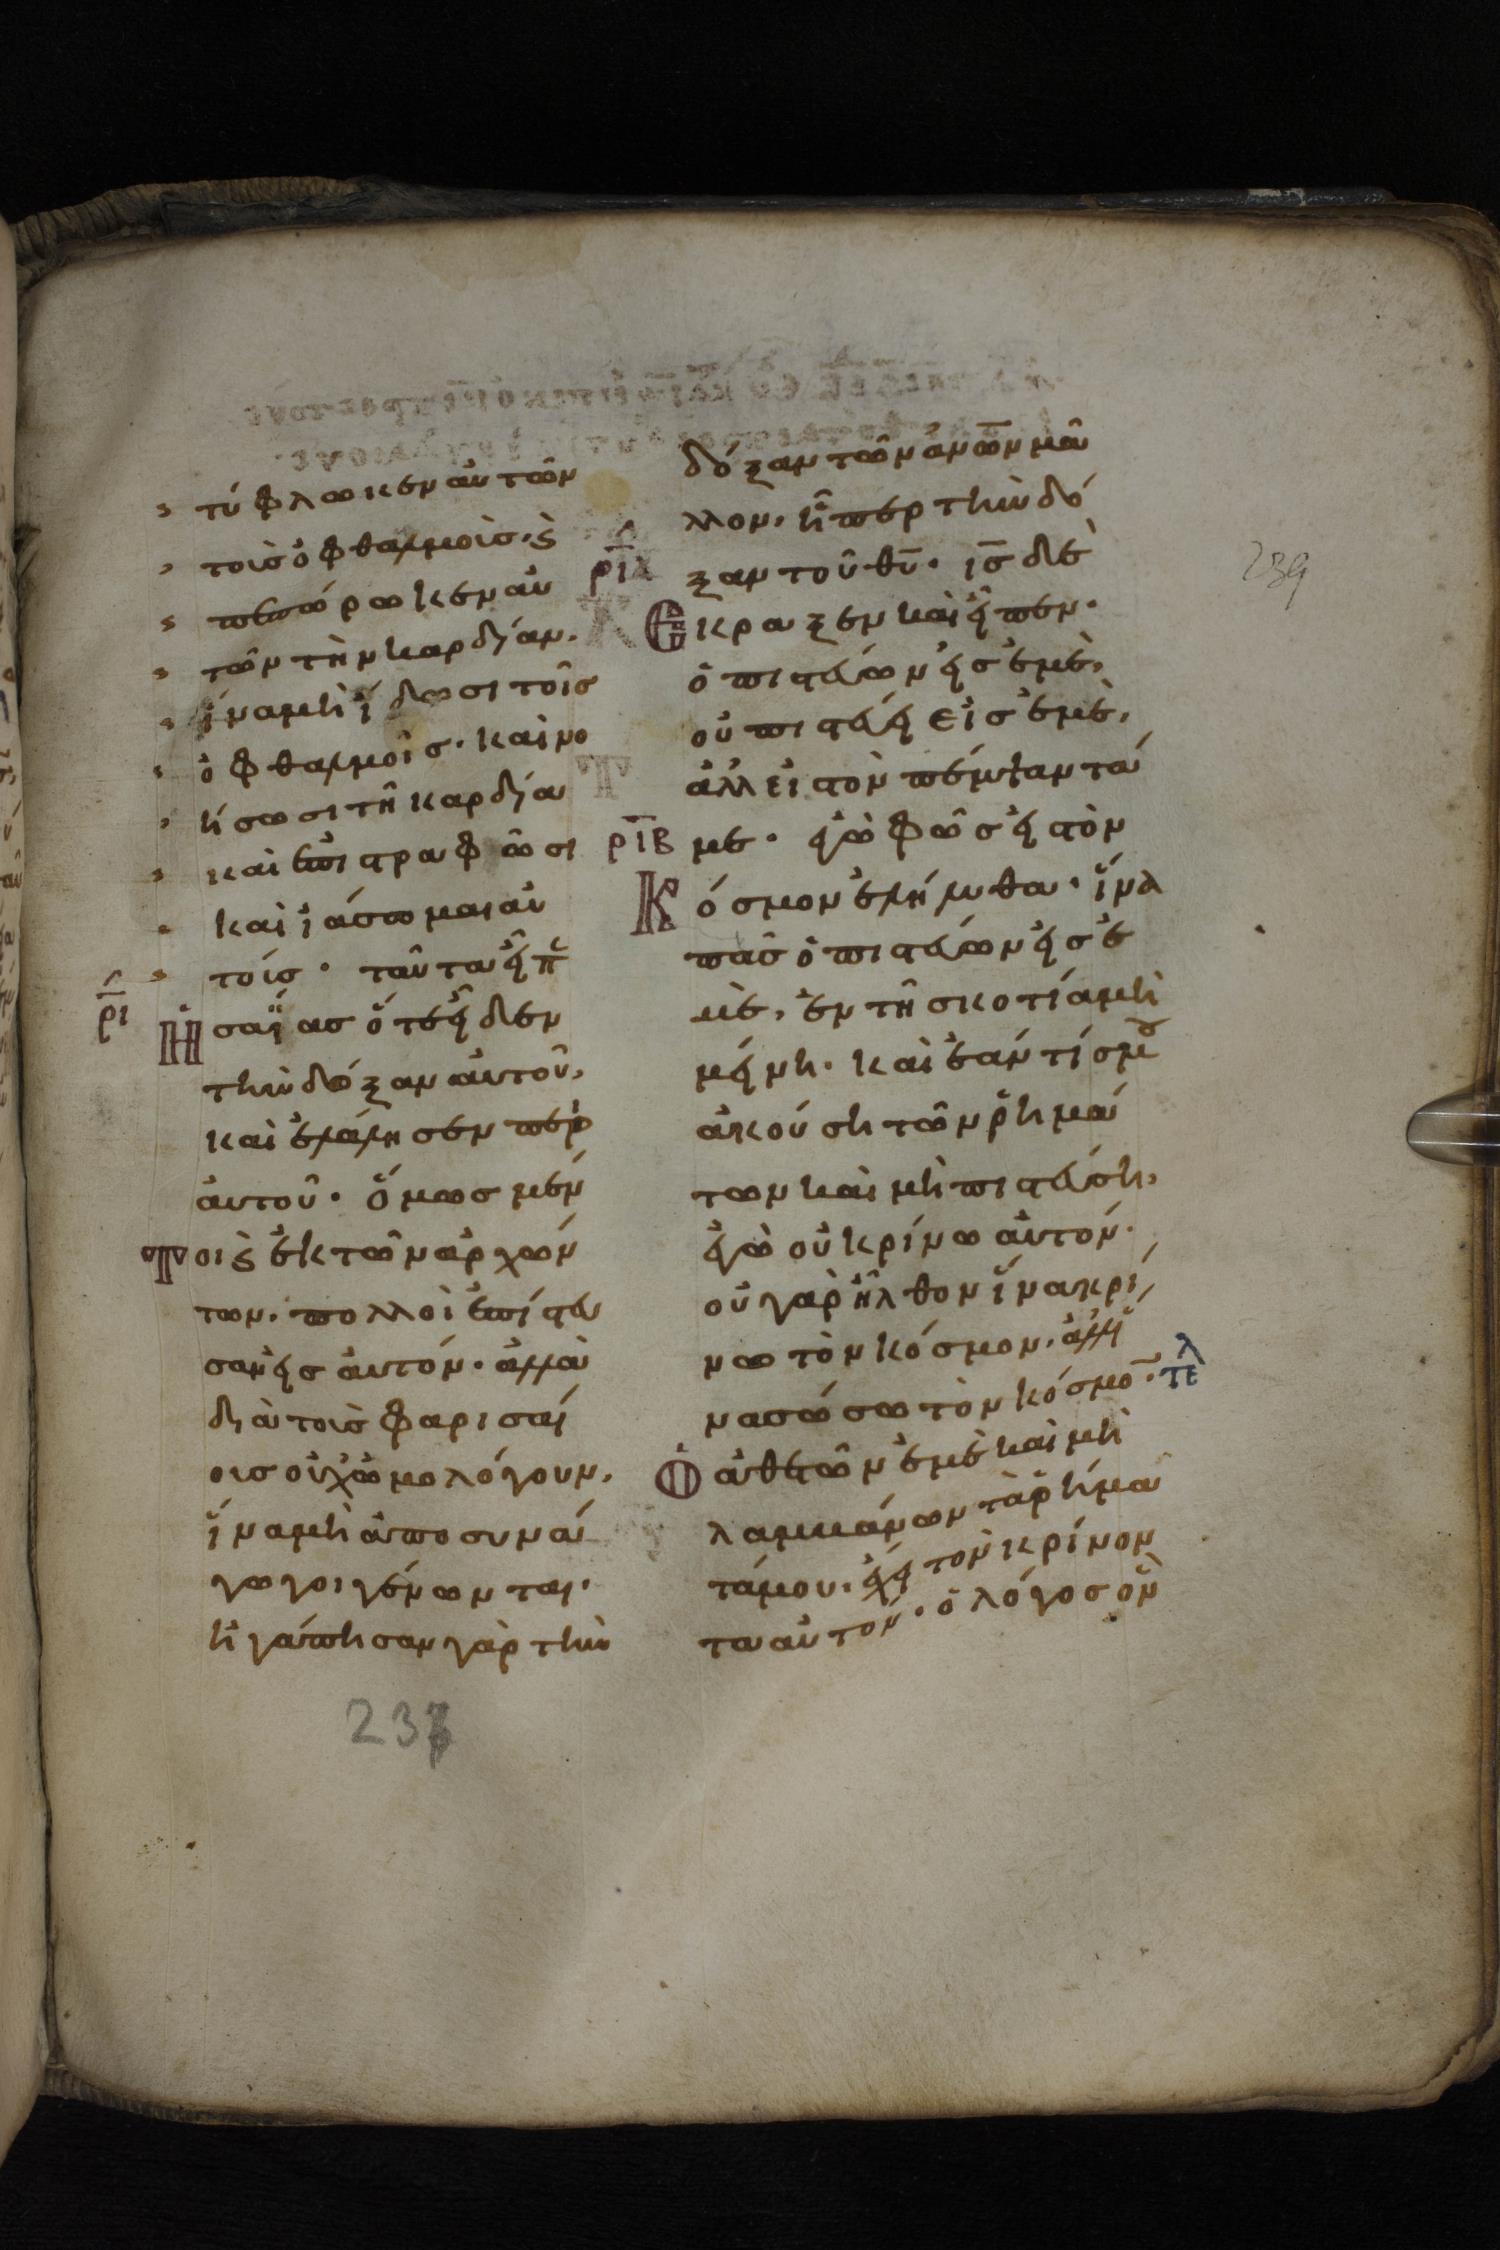 τύφλωκεν αὐτῶν
τοὺς ὀφθαλμοὺς, ϗ
πεπώρωκεν αὐ
τῶν τὴν καρδίαν.
ἵνα μὴ ἴδωσι τοῖς
ὀφθαλμοῖς. καὶ νο
ήσωσι τῆ καρδία
καὶ ἐπιστραφῶσι
καὶ ἰάσωμαι αὐ
τούς. ταῦτα εἶπ
ρι Ἡσαΐας ὅτε εἶδεν
τὴν δόξαν αὐτοῦ,
καὶ ἐλάλησεν περὶ
αὐτοῦ. ὅμως μέν
Τοι ϗ ἐκ τῶν ἀρχόν
των. πολλοὶ ἐπίστευ
σαν εἰς αὐτόν. ἀλλὰ
διὰ τοὺς φαρισαί
ους οὐχ ὡμολόγουν,
ἵνα μὴ ἀποσυνά
γωγοι γένωνται.
ἠγάπησαν γὰρ τὴν
237
δόξαν τῶν ἀνων μᾶ
λλον, ἤπερ τὴν δό
ρια ξαν τοῦ θυ. ις δὲ
Εκραξεν καὶ εἶπεν.
ὁ πιστεύων εἰς ἐμὲ,
οὐ πιστεύει εἰς ἐμὲ,
ἀλλ εἰς τὸν πέμψαντά
ριβ με. ἐγὼ φῶς εἰς τὸν
Κόσμον ἐλήλυθα. ἵνα
πᾶς ὁ πιστεύων εἰς ἐ
μὲ, ἐν τῆ σκοτία μὴ
μείνη. καὶ ἐάν τίς μου
ἀκούση τῶν ῥημά
των καὶ μὴ πιστεύση,
ἐγὼ οὐ κρίνω αὐτόν.
οὐ γὰρ ἦλθον ἵνα κρί
νω τὸν κόσμον, ἀλλ ἵ
να σώσω τὸν κόσμο. τελ
Ὁ ἀθετῶν ἐμὲ καὶ μὴ
λαμβάνων τὰ ῥήμα
τά μου. ἔχει τὸν κρίνον
τα αὐτόν. ὁ λόγος ὃν
239